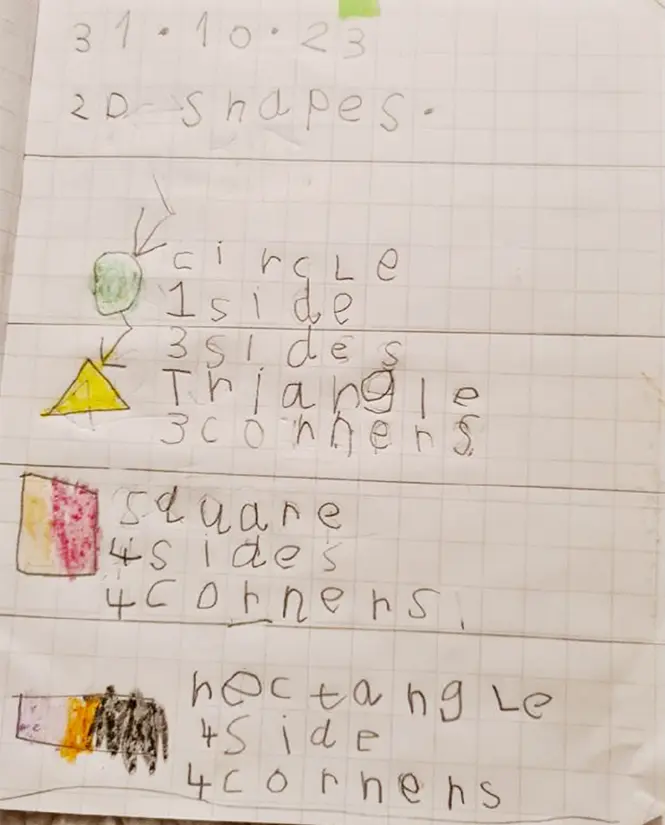 31.10.23
2D shapes.
circle
1side
3sides
Triangle
3corners
square
4sides
4corners.
rectangle
4side
4corners